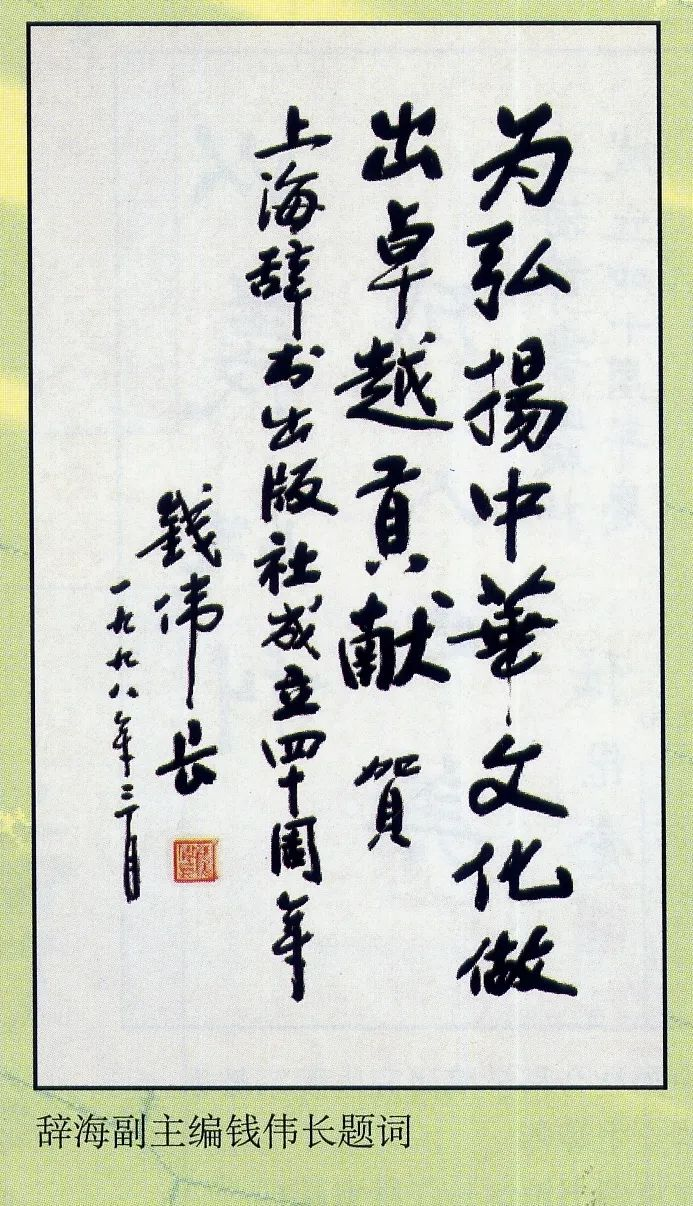 为弘揚中華文化做
出卓越貢献 賀
上海辞书出版社成立四十周年
錢伟长
一九九八年二月
辞海副主编钱伟长题词